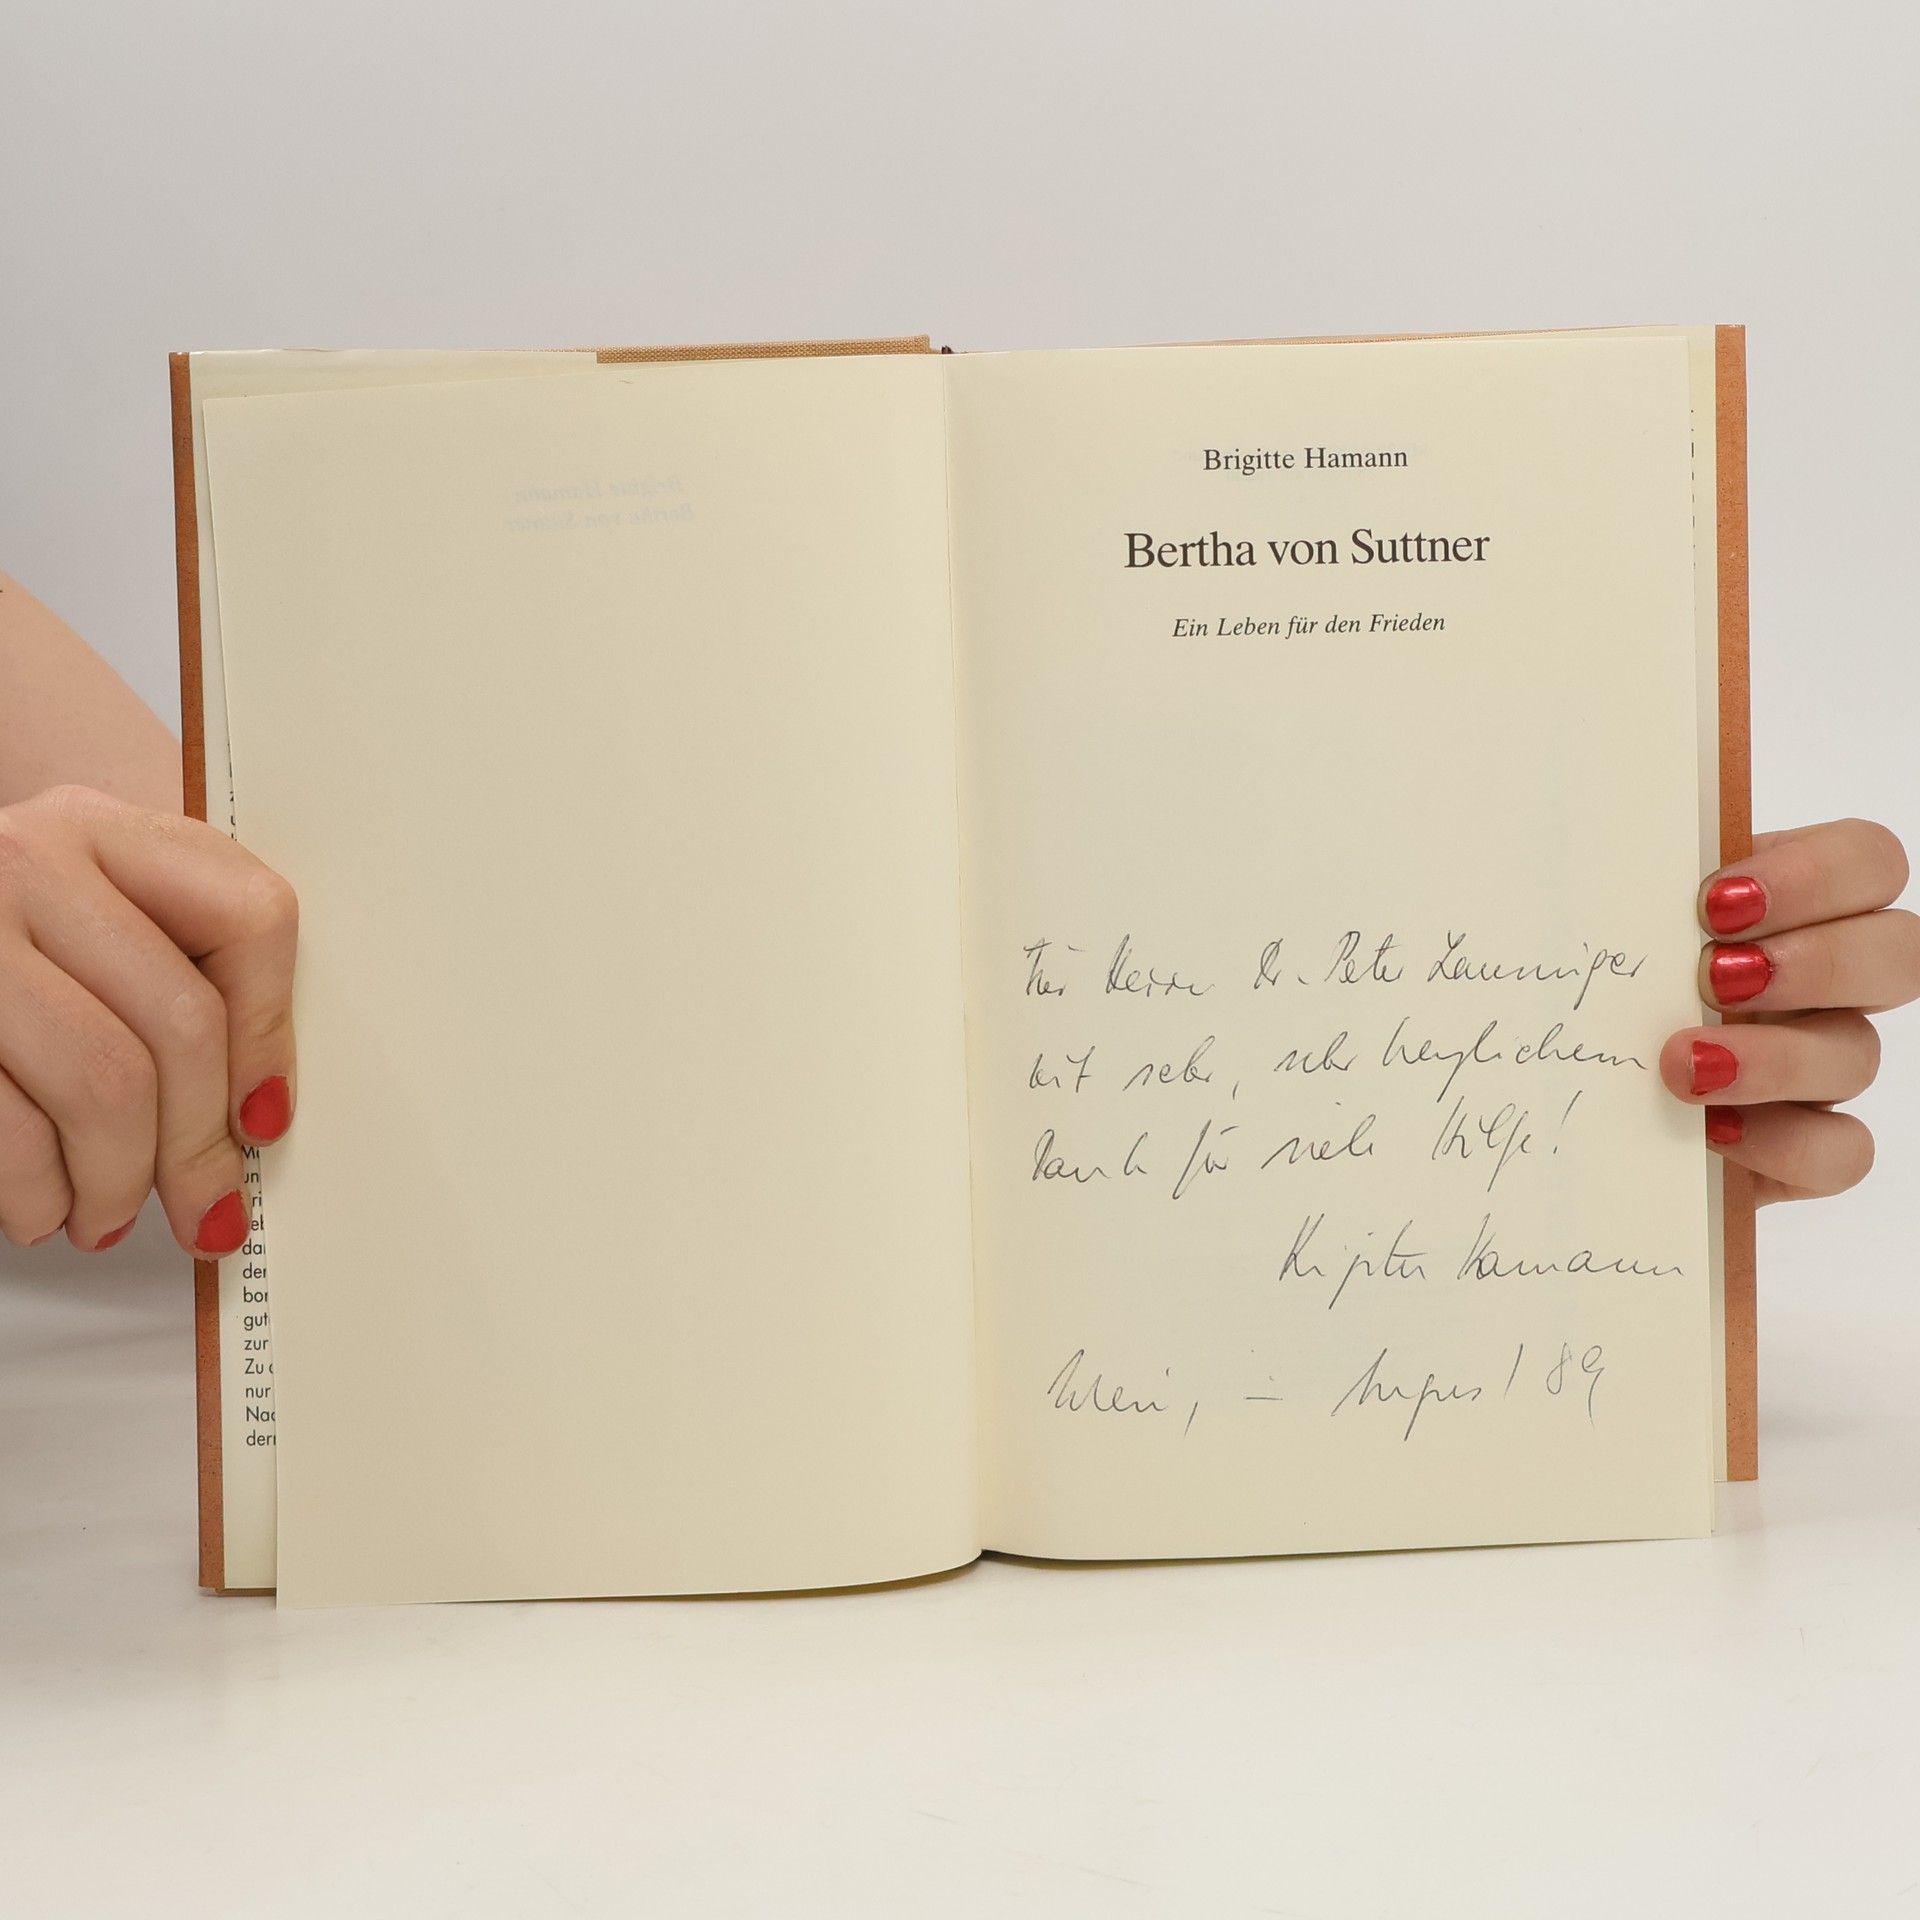 Ma
un
dar
der
bor
gut
zur
Zu
nur
Nac
dern
Brigitte Hamann
Bertha von Suttner
Ein Leben für den Frieden
Für Herrn Dr. Peter
mit sehr, sehr herzlichem
Dank für viele Hilfe!
Brigitte Hamann
Wien, im August 89